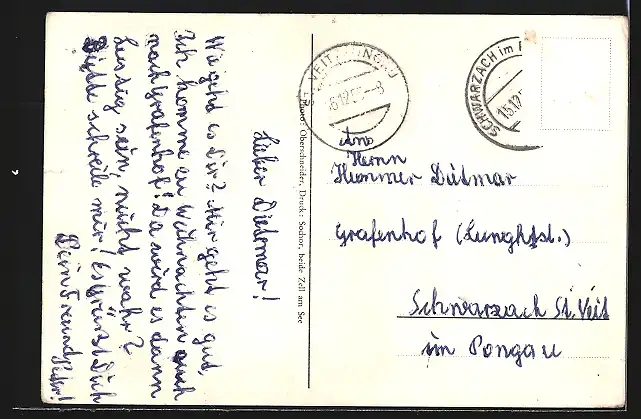 Lieber Dietmar!
Wie geht es Dir? Mir geht es gut.
Ich komme zu Weihnachten auch
nach Grafenhof! Da wird es dann
lustig sein, nicht wahr?
Bitte schreibe mir! Es grüßt Dich
Dein Freund Peter!
Photo: Oberschneider, Druck: Sochor, beide Zell am See
ST. VEIT
SCHWARZACH im P
15.12.5
An
Herrn
Hummer Dietmar
Grafenhof (Lunghst.)
Schwarzach St. Veit
im Pongau